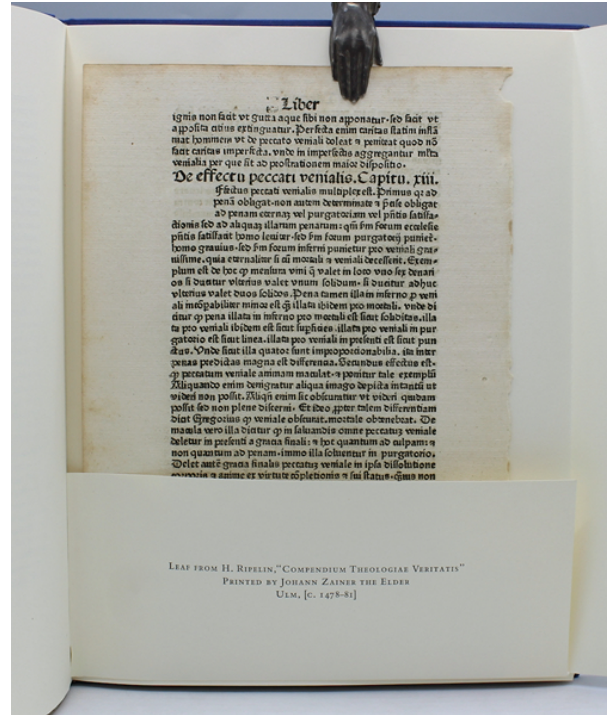 Liber
ignis non facit vt gutta aque sibi non apponatur·sed facit vt
apposita citius extinguatur. Perfecta enim caritas statim inflā
mat hominem vt de peccato veniali doleat ⁊ peniteat quod nō
facit caritas imperfecta. vnde in imperfectis aggregantur mĺta
venialia per que fit ad prostrationem maior dispositio.
De effectu peccati venialis. Capitu. xiii.
Effectus peccati venialis multiplex est. Primus qꝛ ad
penā obligat·non autem determinate ⁊ p̄cise obligat
ad penam eternaꝫ vel purgatoriam vel p̄ntis satisfa-
ctionis sed ad aliquaꝫ illarum penarum: qm̄ ẜm forum ecclesie
p̄ntis satisfacit homo leuiter·sed ẜm forum purgatorij puniet᷑
homo grauius·sed ẜm forum inferni punietur pro veniali gra-
uissime. quia eternaliter si cū mortali ⁊ veniali decesserit. Exem-
plum est de hoc ꝙ mensura vini q̄ valet in loco vno sex denari
os si ducitur vlterius valet vnum solidum· si ducitur adhuc
vlterius valet duos solidos. Pena tamen illa in inferno ꝓ veni
ali incōpabiliter minor est q̄ꝫ illata ibidem pro mortali. vnde di
citur ꝙ pena illata in inferno pro mortali est sicut soliditas. illa
ta pro veniali ibidem est sicut suꝑficies. illata pro veniali in pur
gatorio est sicut linea. illata pro veniali in presenti est sicut pun
ctus. Vnde sicut illa quator sunt improporcionabilia. ita inter
penas predictas magna est differencia. Secundus effectus est·
ꝙ peccatum veniale animam maculat·⁊ ponitur tale exemplū
Aliquando enim denigratur aliqua imago depicta intantū ut
videri non possit. Aliqn̄ enim sic obscuratur vt videri quidam
possit sed non plene discerni· Et ideo ꝓpter talem differentiam
dicit Gregorius ꝙ veniale obscurat. mortale obtenebrat. De
macula vero illa dicitur ꝙ in saluandis omne peccatuꝫ veniale
deletur in presenti a gracia finali: ⁊ hoc quantum ad culpam: ⁊
non quantum ad penam·immo illa soluentur in purgatorio.
Delet autē gracia finalis peccatuꝫ veniale in ipsa dissolutione
corporis ⁊ anime ex virtute cōpletionis ⁊ sui status· non
Leaf from H. Ripelin, "Compendium Theologiae Veritatis"
Printed by Johann Zainer the Elder
Ulm, [c. 1478-81]